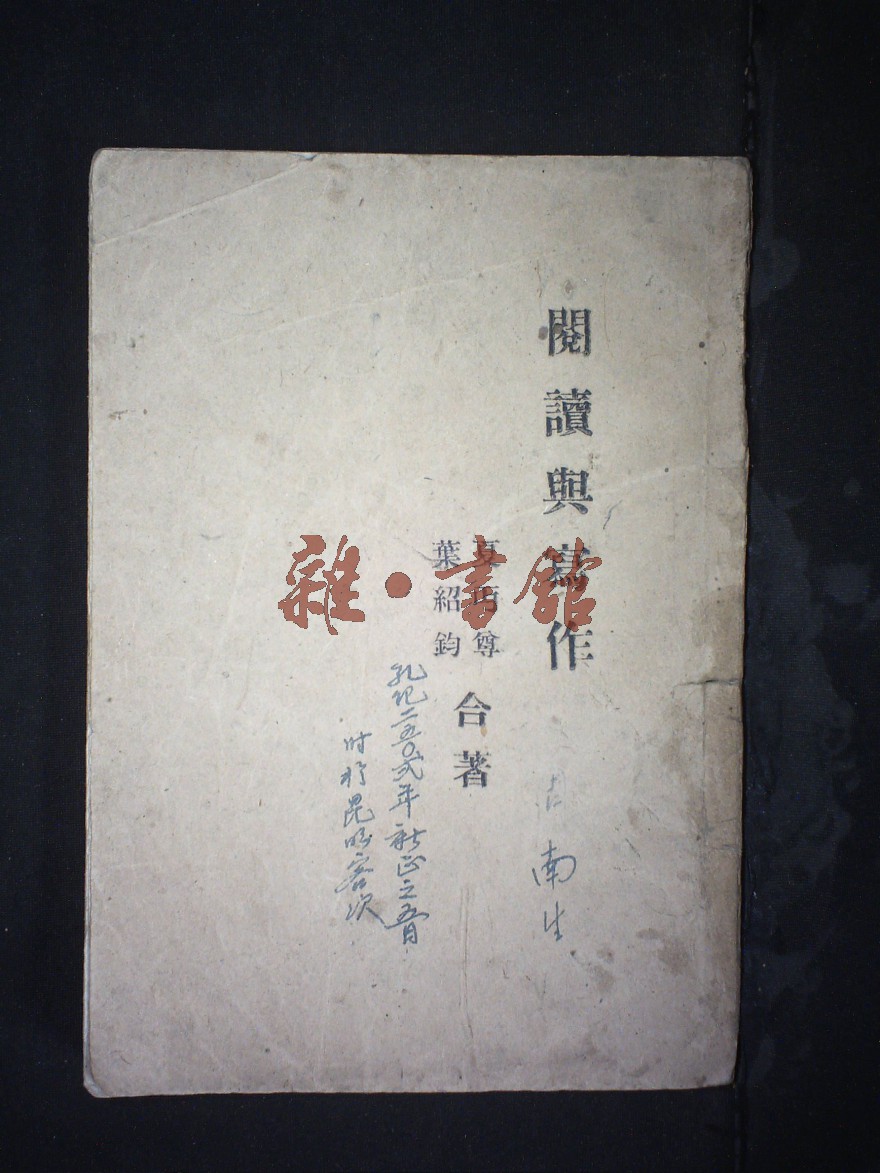 閱讀與寫作
夏丏尊
葉紹鈞
合著
南生
孔紀二五〇弍年新正之五日
时於昆明客次
雜·書館